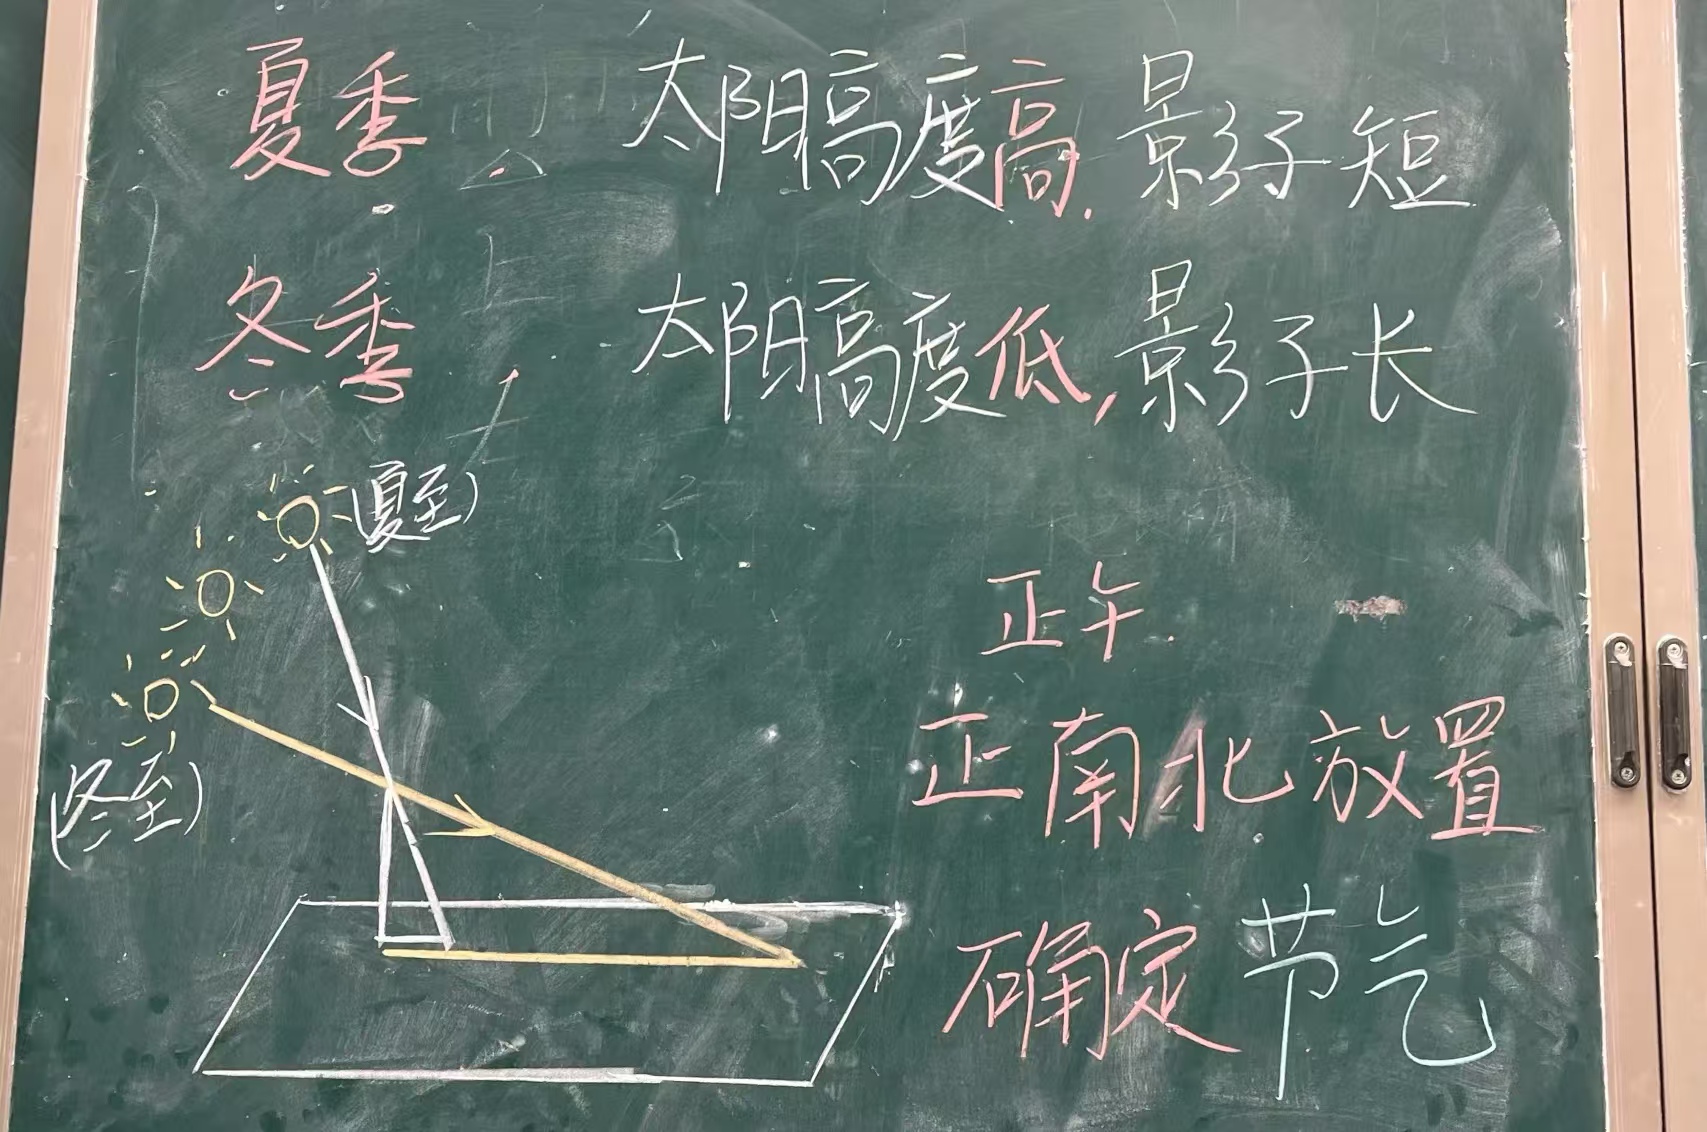 夏季 太阳高度高,影子短
冬季 太阳高度低,影子长
(夏至)
(冬至)
正午
正南北放置
确定节气